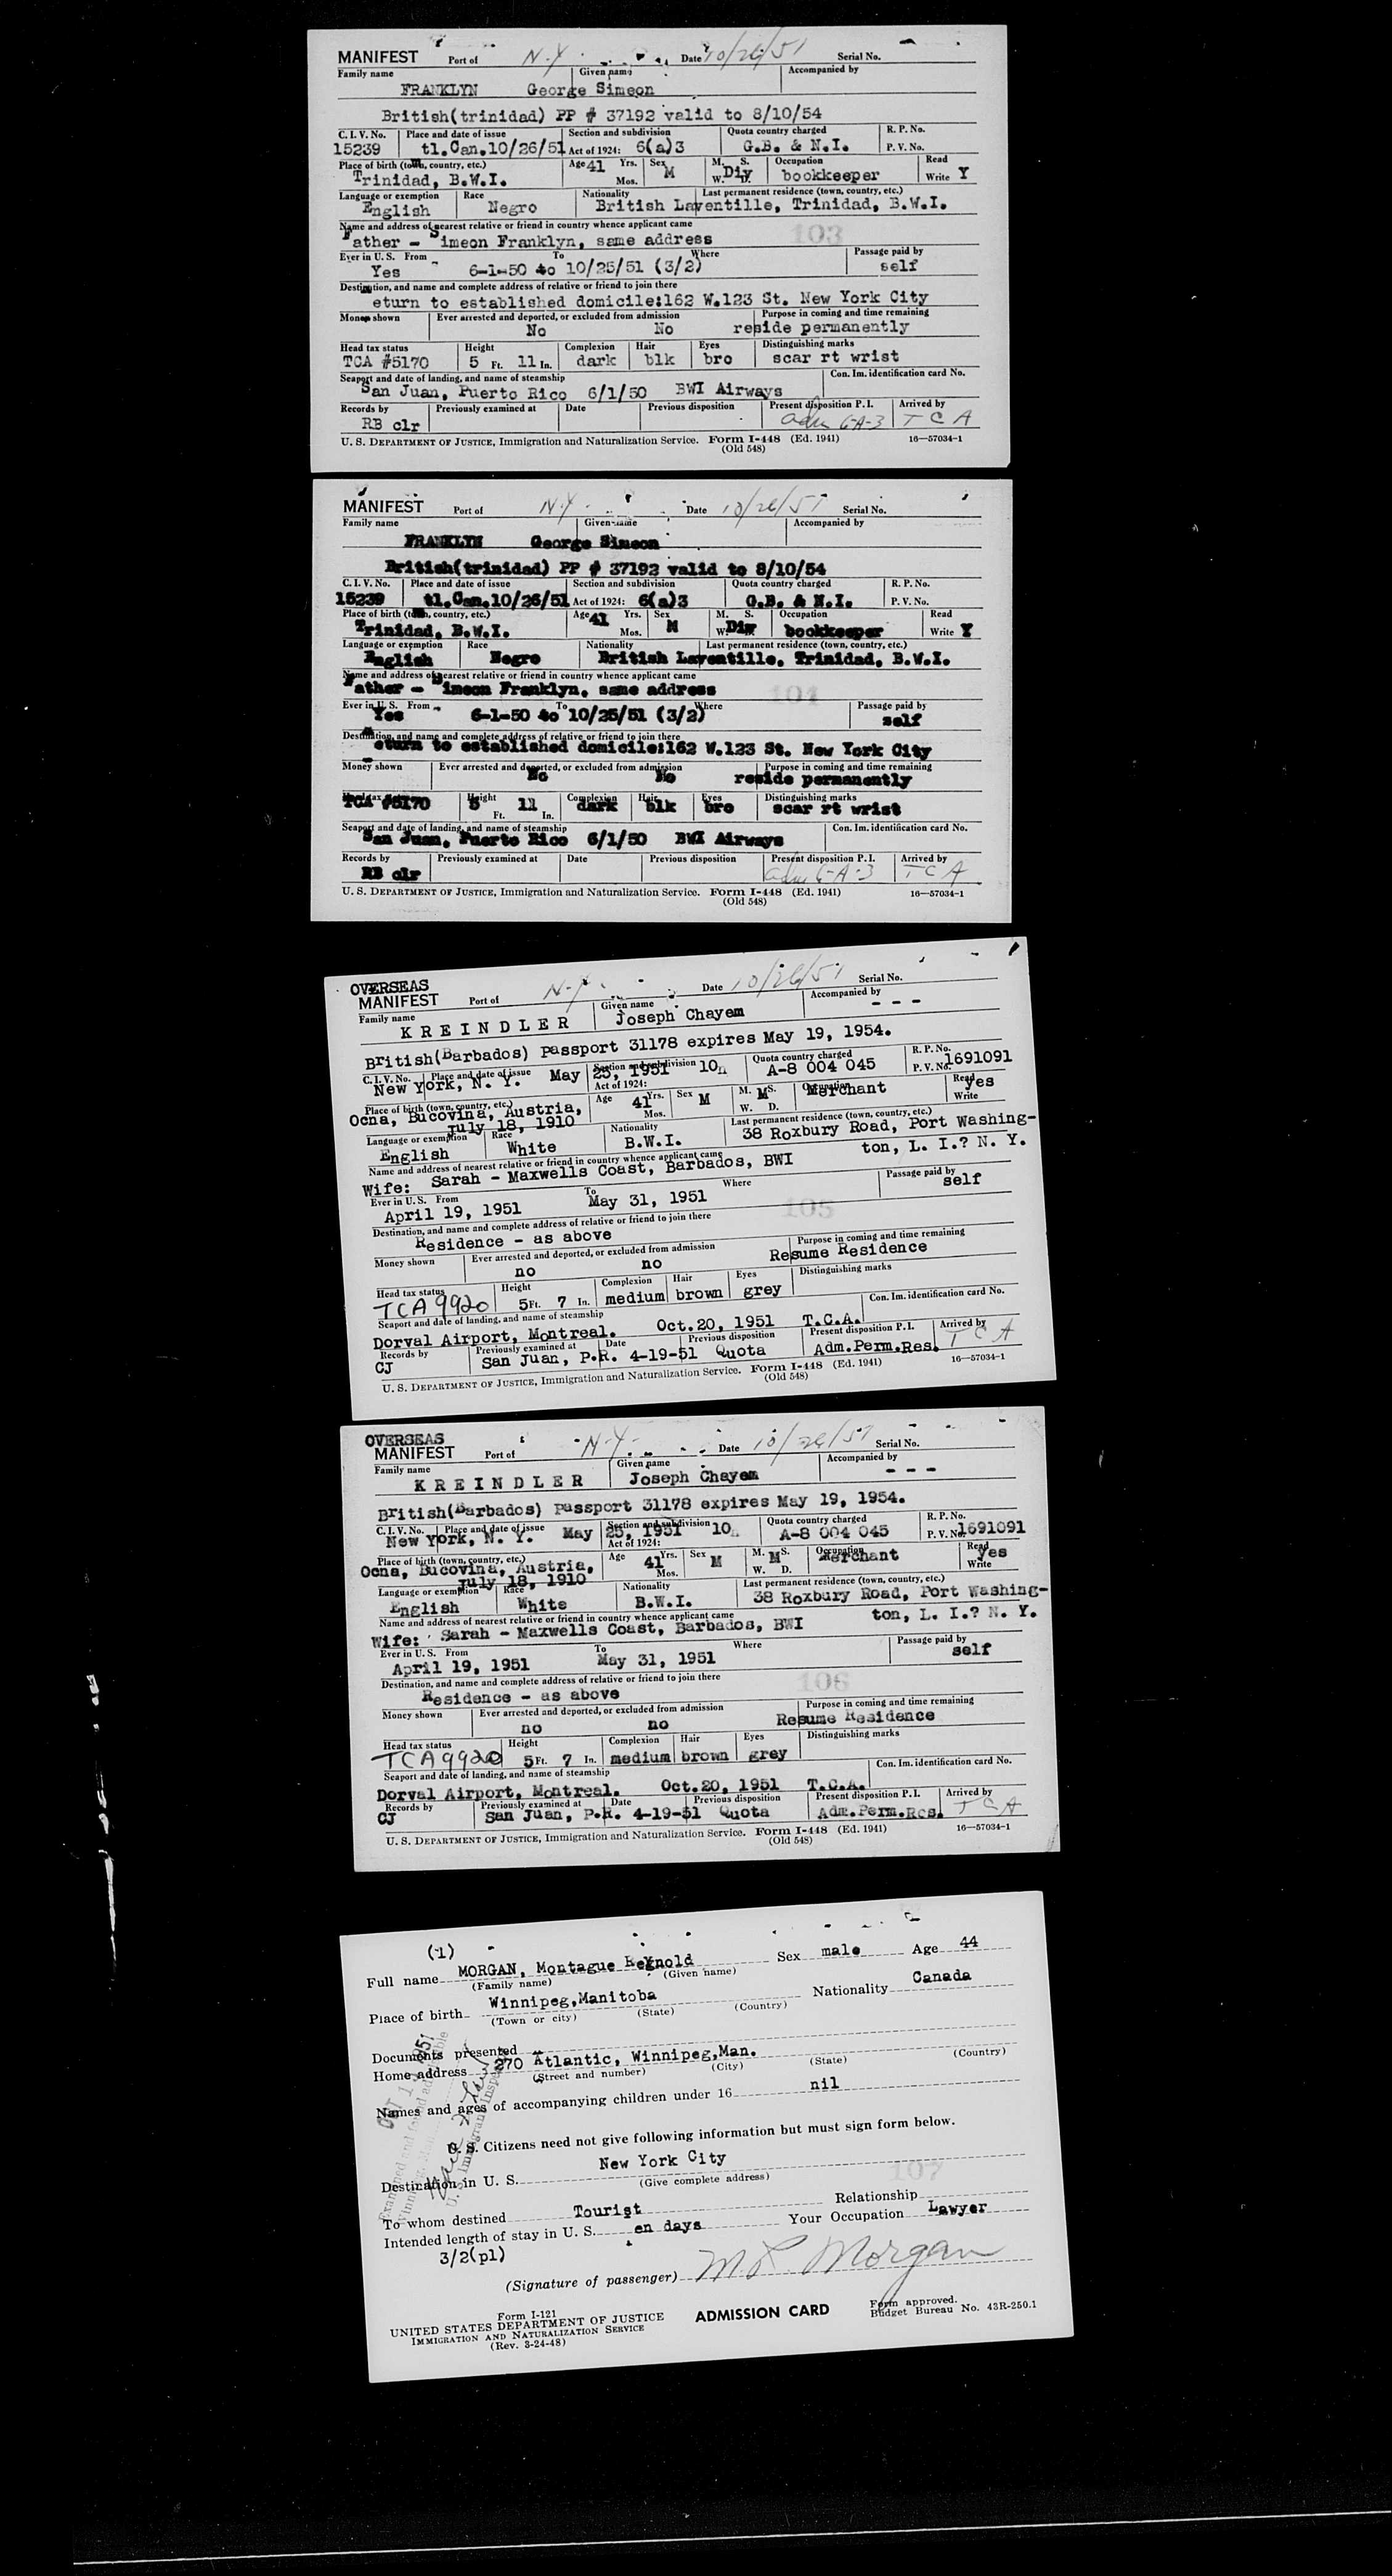 MANIFEST Port of N.Y. Date 10/26/51 Serial No.
Family name Given name Accompanied by
FRANKLYN George Simeon
British(trinidad) PP # 37192 valid to 8/10/54
C. I. V. No. Place and date of issue Section and subdivision Quota country charged R. P. No.
15239 tl.Can.10/26/51 Act of 1924: 6(a)3 G.B. & N.I. P. V. No.
Place of birth (town, country, etc.) Age 41 Yrs. Sex M. S. Occupation Read
Trinidad, B.W.I. Mos. M W. Div D. bookkeeper Write Y
Language or exemption Race Nationality Last permanent residence (town, country, etc.)
English Negro British Laventille, Trinidad, B.W.I.
Name and address of nearest relative or friend in country whence applicant came
Father - Simeon Franklyn, same address 103
Ever in U. S. From To Where Passage paid by
Yes 6-1-50 to 10/25/51 (3/2) self
Destination, and name and complete address of relative or friend to join there
eturn to established domicile:162 W.123 St. New York City
Money shown Ever arrested and deported, or excluded from admission Purpose in coming and time remaining
No No reside permanently
Head tax status Height Complexion Hair Eyes Distinguishing marks
TCA #5170 5 Ft. 11 In. dark blk bro scar rt wrist
Seaport and date of landing, and name of steamship Con. Im. identification card No.
San Juan, Puerto Rico 6/1/50 BWI Airways
Records by Previously examined at Date Previous disposition Present disposition P. I. Arrived by
RB clr adm 6-A-3 TCA
U. S. DEPARTMENT OF JUSTICE, Immigration and Naturalization Service. Form I-448 (Ed. 1941) 16—57034-1
(Old 548)
MANIFEST Port of N.Y. Date 10/26/51 Serial No.
Family name Given name Accompanied by
FRANKLYN George Simeon
British(trinidad) PP # 37192 valid to 8/10/54
C. I. V. No. Place and date of issue Section and subdivision Quota country charged R. P. No.
15239 tl.Can.10/26/51 Act of 1924: 6(a)3 G.B. & N.I. P. V. No.
Place of birth (town, country, etc.) Age 41 Yrs. Sex M. S. Occupation Read
Trinidad, B.W.I. Mos. M W. Div D. bookkeeper Write Y
Language or exemption Race Nationality Last permanent residence (town, country, etc.)
English Negro British Laventille, Trinidad, B.W.I.
Name and address of nearest relative or friend in country whence applicant came
Father - Simeon Franklyn, same address 104
Ever in U. S. From To Where Passage paid by
Yes 6-1-50 to 10/25/51 (3/2) self
Destination, and name and complete address of relative or friend to join there
eturn to established domicile:162 W.123 St. New York City
Money shown Ever arrested and deported, or excluded from admission Purpose in coming and time remaining
No No reside permanently
Head tax Height Complexion Hair Eyes Distinguishing marks
TCA #5170 5 Ft. 11 In. dark blk bro scar rt wrist
Seaport and date of landing, and name of steamship Con. Im. identification card No.
San Juan, Puerto Rico 6/1/50 BWI Airways
Records by Previously examined at Date Previous disposition Present disposition P. I. Arrived by
RB clr adm 6-A-3 TCA
U. S. DEPARTMENT OF JUSTICE, Immigration and Naturalization Service. Form I-448 (Ed. 1941) 16—57034-1
(Old 548)
OVERSEAS
MANIFEST Port of N.Y. Date 10/26/51 Serial No.
Family name Given name Accompanied by
KREINDLER Joseph Chayem - - -
British(Barbados) Passport 31178 expires May 19, 1954.
C. I. V. No. Place and date of issue Section and subdivision Quota country charged R. P. No.
New York, N. Y. May 25, 1951 10 A-8 004 045 P. V. No. 1691091
Act of 1924:
Place of birth (town, country, etc.) Age 41 Yrs. Sex M M. M S. Occupation Read
Ocna, Bucovina, Austria, Mos. W. D. Merchant yes Write
July 18, 1910
Language or exemption Race Nationality Last permanent residence (town, country, etc.)
English White B.W.I. 38 Roxbury Road, Port Washing-
Name and address of nearest relative or friend in country whence applicant came ton, L. I.? N. Y.
Wife: Sarah - Maxwells Coast, Barbados, BWI
Ever in U. S. From To Where Passage paid by
April 19, 1951 May 31, 1951 self
Destination, and name and complete address of relative or friend to join there 105
Residence - as above
Money shown Ever arrested and deported, or excluded from admission Purpose in coming and time remaining
no no Resume Residence
Head tax status Height Complexion Hair Eyes Distinguishing marks
TCA 9920 5 Ft. 7 In. medium brown grey
Seaport and date of landing, and name of steamship Con. Im. identification card No.
Dorval Airport, Montreal. Oct.20, 1951 T.C.A.
Records by Previously examined at Date Previous disposition Present disposition P. I. Arrived by
CJ San Juan, P.R. 4-19-51 Quota Adm.Perm.Res. TCA
U. S. DEPARTMENT OF JUSTICE, Immigration and Naturalization Service. Form I-448 (Ed. 1941) 16—57034-1
(Old 548)
OVERSEAS
MANIFEST Port of N.Y. Date 10/26/51 Serial No.
Family name Given name Accompanied by
KREINDLER Joseph Chayem - - -
British(Barbados) Passport 31178 expires May 19, 1954.
C. I. V. No. Place and date of issue Section and subdivision Quota country charged R. P. No.
New York, N. Y. May 25, 1951 10 A-8 004 045 P. V. No. 1691091
Act of 1924:
Place of birth (town, country, etc.) Age 41 Yrs. Sex M M. M S. Occupation Read
Ocna, Bucovina, Austria, Mos. W. D. Merchant yes Write
July 18, 1910
Language or exemption Race Nationality Last permanent residence (town, country, etc.)
English White B.W.I. 38 Roxbury Road, Port Washing-
Name and address of nearest relative or friend in country whence applicant came ton, L. I.? N. Y.
Wife: Sarah - Maxwells Coast, Barbados, BWI
Ever in U. S. From To Where Passage paid by
April 19, 1951 May 31, 1951 self
Destination, and name and complete address of relative or friend to join there 106
Residence - as above
Money shown Ever arrested and deported, or excluded from admission Purpose in coming and time remaining
no no Resume Residence
Head tax status Height Complexion Hair Eyes Distinguishing marks
TCA 9920 5 Ft. 7 In. medium brown grey
Seaport and date of landing, and name of steamship Con. Im. identification card No.
Dorval Airport, Montreal. Oct.20, 1951 T.C.A.
Records by Previously examined at Date Previous disposition Present disposition P. I. Arrived by
CJ San Juan, P.R. 4-19-51 Quota Adm.Perm.Res. TCA
U. S. DEPARTMENT OF JUSTICE, Immigration and Naturalization Service. Form I-448 (Ed. 1941) 16—57034-1
(Old 548)
(1)
Full name MORGAN, Montague Reynold Sex male Age 44
(Family name) (Given name)
Place of birth Winnipeg,Manitoba Nationality Canada
(Town or city) (State) (Country)
Documents presented
Home address 270 Atlantic, Winnipeg,Man.
(Street and number) (City) (State) (Country)
Names and ages of accompanying children under 16 nil
U. S. Citizens need not give following information but must sign form below.
Destination in U. S. New York City
(Give complete address) 107
To whom destined Tourist Relationship
Intended length of stay in U. S. en days Your Occupation Lawyer
3/2(pl)
(Signature of passenger) M R Morgan
Form I-121
UNITED STATES DEPARTMENT OF JUSTICE ADMISSION CARD Form approved.
IMMIGRATION AND NATURALIZATION SERVICE Budget Bureau No. 43R-250.1
(Rev. 3-24-48)